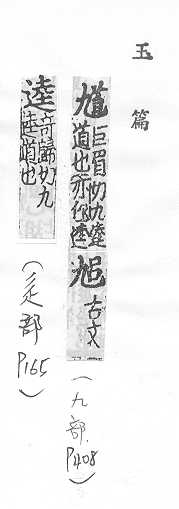 玉篇
馗
巨眉切九逵
道也亦作逵
古文
(九部.P408)
逵
奇歸切九
逵道也
(辵部 P165)